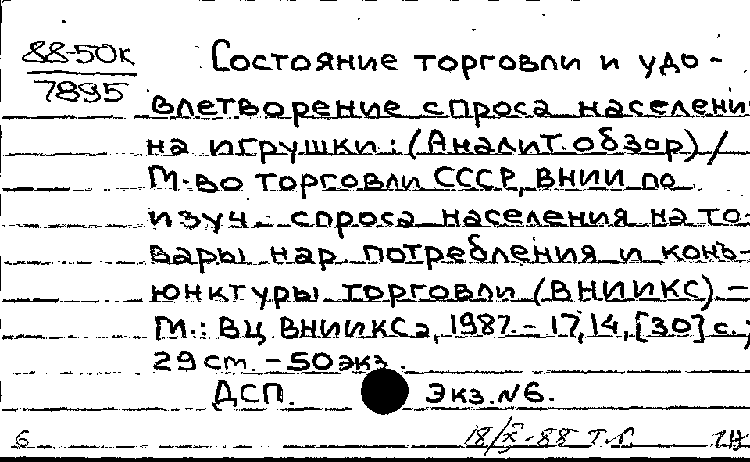 88-50к
7895
Состояние торговли и удо-
влетворение спроса населени
на игрушки: (Аналит. обзор) /
М-во торговли СССР, ВНИИ по
изуч. спроса населения на то-
вары нар. потребления и конъ-
юнктуры торговли (ВНИИКС) –
М.: ВЦ ВНИИКСа, 1987. – 17, 14, [30] с.;
29 см. – 50 экз.
ДСП. Экз. №6.
6 18/X-88 Т.Г.